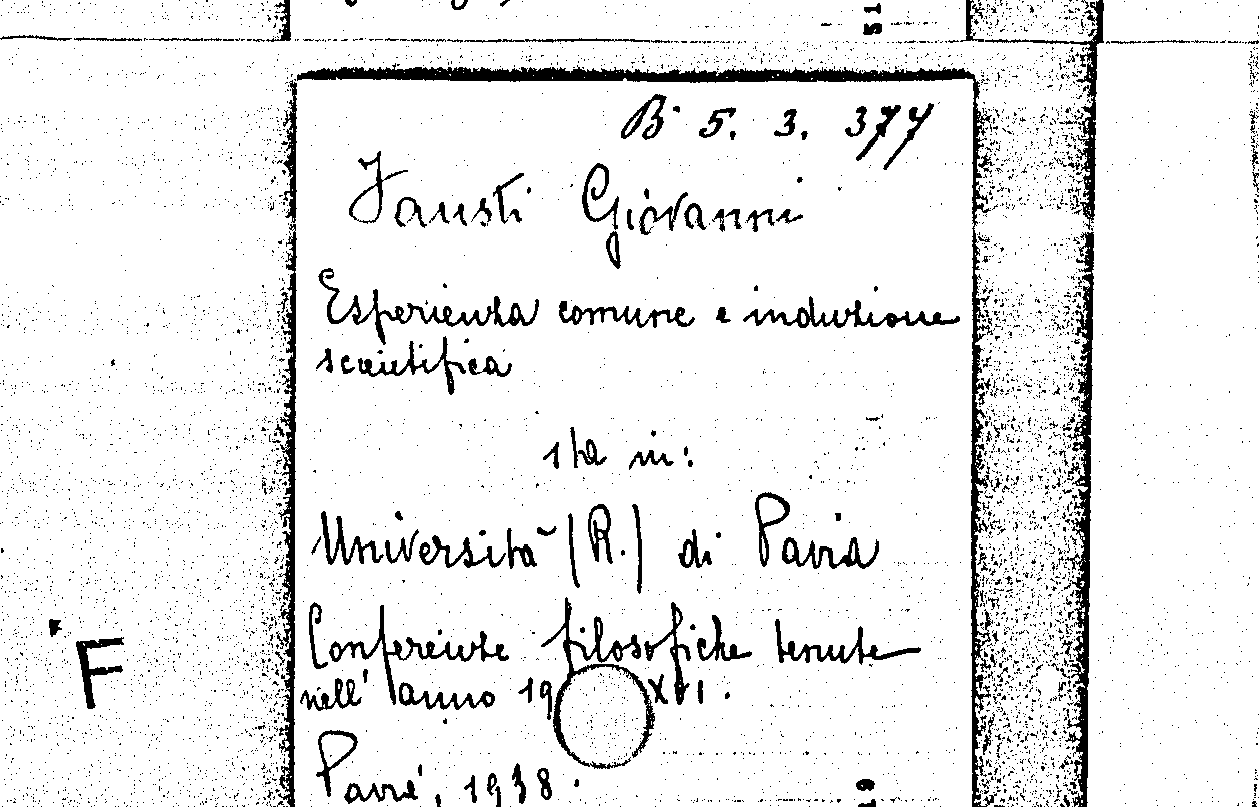 51
B 5. 3. 377
Fausti Giovanni
Esperienza comune e induzione
scientifica
sta in:
Università (R.) di Pavia
Conferenze filosofiche tenute
nell' anno 19 XVI.
F
Pavia, 1938.
19